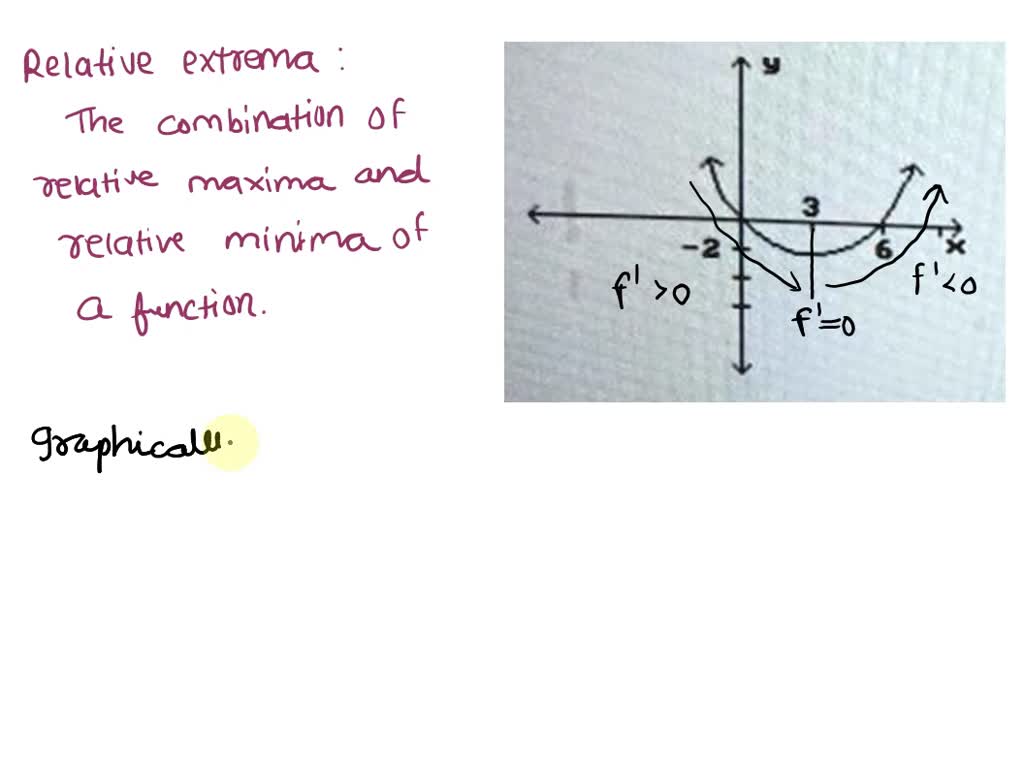 Relative extrema :
The combination of
relative maxima and
relative minima of
a function.
graphicall
y
3
-2
6
x
f' > 0
f' < 0
f' = 0